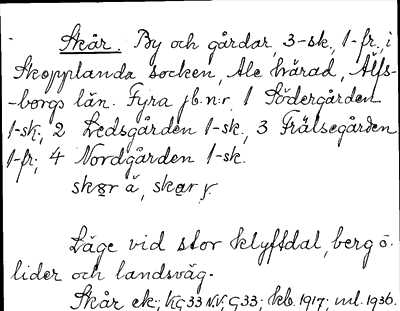 Skår. By och gårdar, 3-sk., 1-fr., i
Skepplanda socken, Ale härad, Älfs-
-borgs län. Fyra jb.n:r, 1 Södergården
1-sk., 2 Ledsgården 1-sk., 3 Frälsegården
1-fr., 4 Nordgården 1-sk.
Läge vid stor klyftdal, berg o.
lider och landsväg.
Skår ek.; KG33 N.V., G33; kb. 1917; uul. 1936.